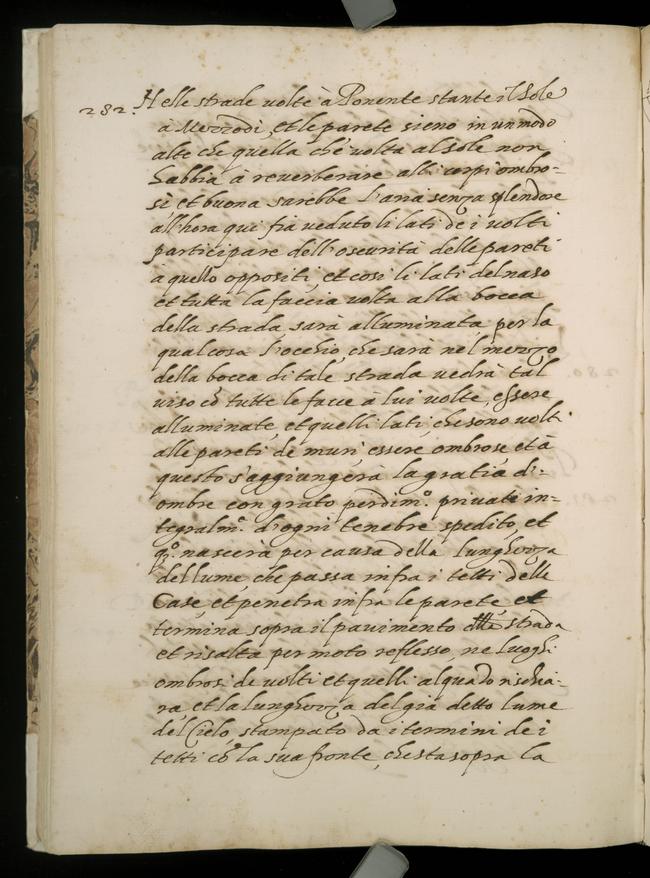 282. Nelle strade volte à Ponente stante il Sole
à Mezzodi, et le parete sieno in un modo
alte che quella che volta al sole non
habbia à reverberare alli corpi ombro-
si et buona sarebbe l'aria senza splendore
all'hora qui fia veduto li lati de i volti
participare dell'oscurità delle pareti
à quello oppositi, et cosi li lati del naso
et tutta la faccia volta alla bocca
della strada sarà alluminata per la
qual cosa l'occhio, che sarà nel mezzo
della bocca di tale strada vedrà tal
viso cō tutte le facce à lui volte, essere
alluminate, et quelli lati, che sono volti
alle pareti de muri, essere ombrose, et à
questo s'aggiungerà la gratia di-
ombre con grato perdim.º private in-
tegralm.º d'ogni tenebre spedito, et
q.º nascerà per causa della lunghezza
del lume, che passa infra i tetti delle
Case, et penetra infra le parete, et
termina sopra il pavimento della strada
et risalta per moto reflesso ne luoghi
ombrosi de volti et quelli alquādo rischia-
ra et la lunghezza del già detto lume
del Cielo, stampato da i termini de i
tetti cō la sua fronte, che sta sopra la